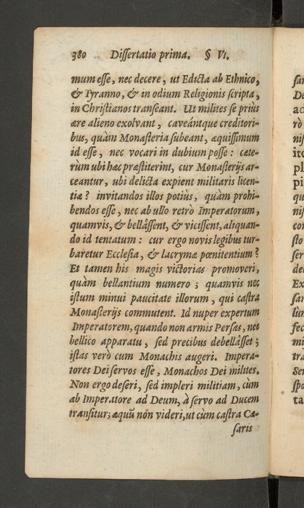 380 Dissertatio prima. § VI.
mum esse, nec decere, ut Edicta ab Ethnico,
& Tyranno, & in odium Religionis scripta,
in Christianos transeant. Ut milites se prius
ære alieno exolvant, caveántque creditori-
bus, quàm Monasteria subeant, æquissimum
id esse, nec vocari in dubium posse: cæte-
rùm ubi hæc præstiterint, cur Monasterijs ar-
ceantur, ubi delicta expient militaris licen-
tiæ? invitandos illos potiùs, quàm prohi-
bendos esse, nec ab ullo retrò Imperatorum,
quamvis, & bellâssent, & vicissent, aliquan-
do id tentatum: cur ergo novis legibus tur-
baretur Ecclesia, & lacrymæ pœnitentium?
Et tamen his magis victorias promoveri,
quàm bellantium numero; quamvis nec
istum minui paucitate illorum, qui castra
Monasterijs commutent. Id nuper expertum
Imperatorem, quando non armis Persas, nec
bellico apparatu, sed precibus debellâsset;
istas verò cum Monachis augeri. Impera-
tores Dei servos esse, Monachos Dei milites.
Non ergo deseri, sed impleri militiam, cùm
ab Imperatore ad Deum, à servo ad Ducem
transitur; æquũ non videri, ut cùm castra Cæ-
saris